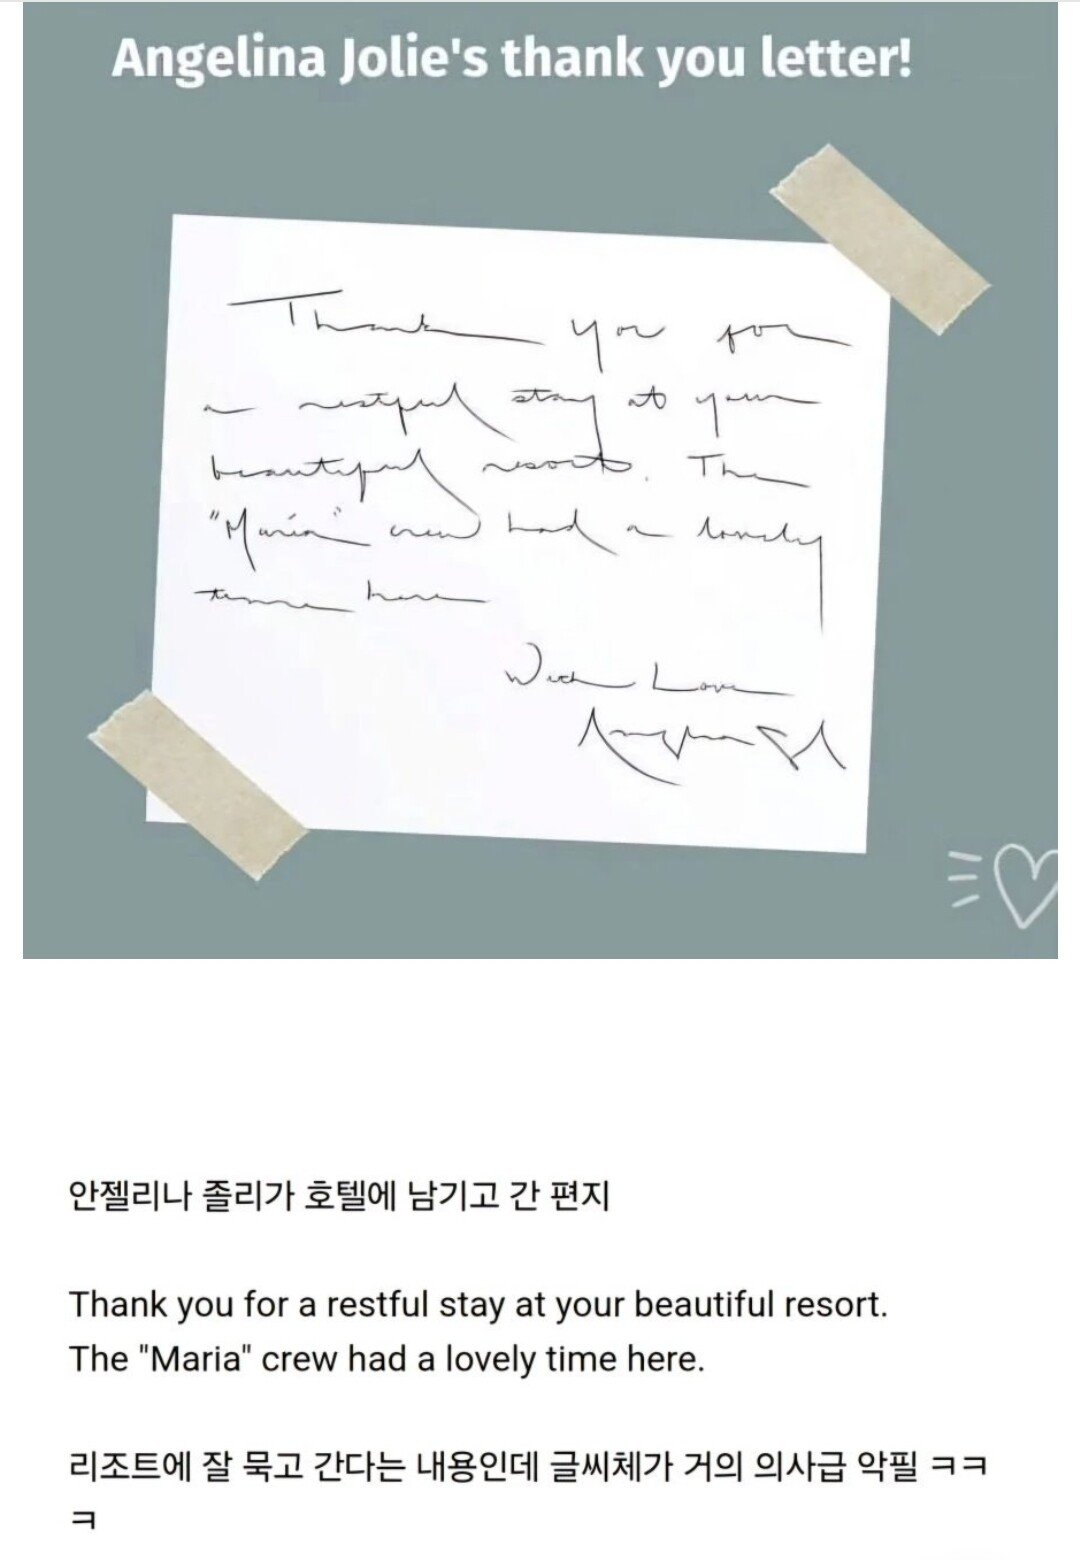 Angelina Jolie's thank you letter!
Thank you for
a restful stay at your
beautiful resort. The
"Maria" crew had a lovely
time here
With Love
Angelina Jol
안젤리나 졸리가 호텔에 남기고 간 편지
Thank you for a restful stay at your beautiful resort.
The "Maria" crew had a lovely time here.
리조트에 잘 묵고 간다는 내용인데 글씨체가 거의 의사급 악필 ㅋㅋ
ㅋ